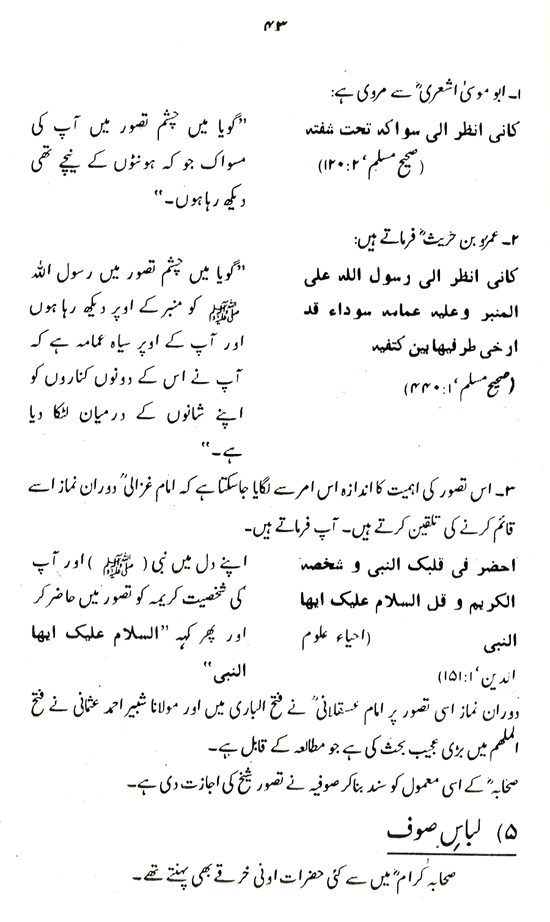 ۴۳
۱۔ ابو موسیٰ اشعریؓ سے مروی ہے:
کانی انظر الی سواکہ تحت شفتہ
(صحیح مسلم، ۲:۱۲۰)
”گویا میں چشم تصور میں آپ کی
مسواک جو کہ ہونٹوں کے نیچے تھی
دیکھ رہا ہوں۔“
۲۔ عمرو بن حریثؓ فرماتے ہیں:
کانی انظر الی رسول اللہ علی
المنبر وعلیہ عمامہ سوداء قد
ارخی طرفیھا بین کتفیہ
(صحیح مسلم، ۱:۴۴۰)
”گویا میں چشم تصور میں رسول اللہ
ﷺ کو منبر کے اوپر دیکھ رہا ہوں
اور آپ کے اوپر سیاہ عمامہ ہے کہ
آپ نے اس کے دونوں کناروں کو
اپنے شانوں کے درمیان لٹکا دیا
ہے۔“
۳۔ اس تصور کی اہمیت کا اندازہ اس امر سے لگایا جاسکتا ہے کہ امام غزالیؒ دوران نماز اسے
قائم کرنے کی تلقین کرتے ہیں۔ آپ فرماتے ہیں۔
احضر فی قلبک النبی و شخصہ
الکریم و قل السلام علیک ایھا
النبی (احیاء علوم
الدین، ۱:۱۵۱)
اپنے دل میں نبی (ﷺ) اور آپ
کی شخصیت کریمہ کو تصور میں حاضر کر
اور پھر کہہ ”السلام علیک ایھا
النبی“
دوران نماز اسی تصور پر امام عسقلانیؒ نے فتح الباری میں اور مولانا شبیر احمد عثمانی نے فتح
الملھم میں بڑی عجیب بحث کی ہے جو مطالعہ کے قابل ہے۔
صحابہؓ کے اسی معمول کو سند بناکر صوفیہ نے تصور شیخ کی اجازت دی ہے۔
۵) لباسِ صوف
صحابہ کرامؓ میں سے کئی حضرات اونی خرقے بھی پہنتے تھے۔